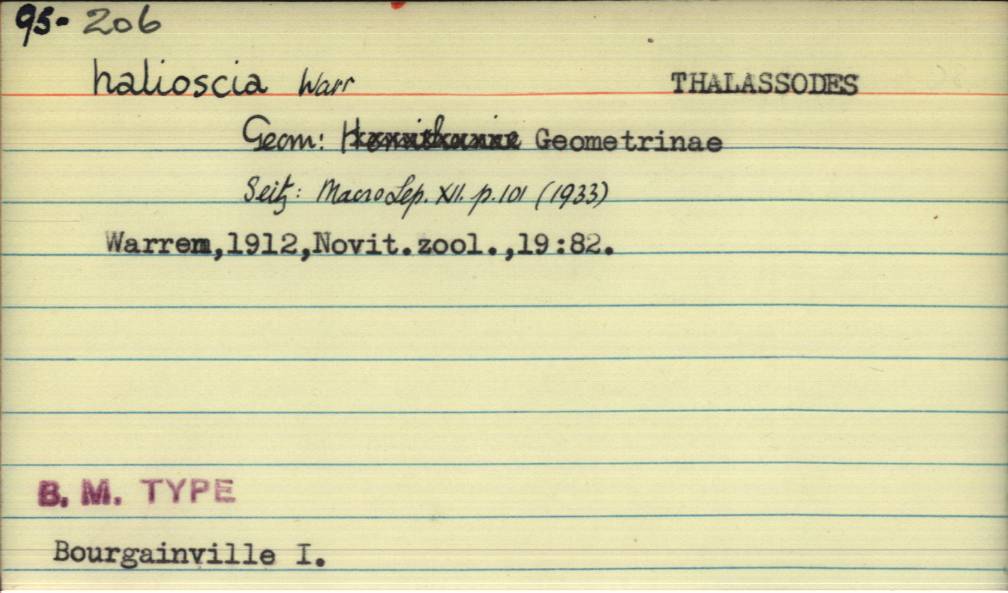 95- 206
halioscia Warr THALASSODES
Geom: Geometrinae
Seitz: MacroLep. XII. p.101 (1933)
Warren,1912,Novit.zool.,19:82.
B. M. TYPE
Bourgainville I.